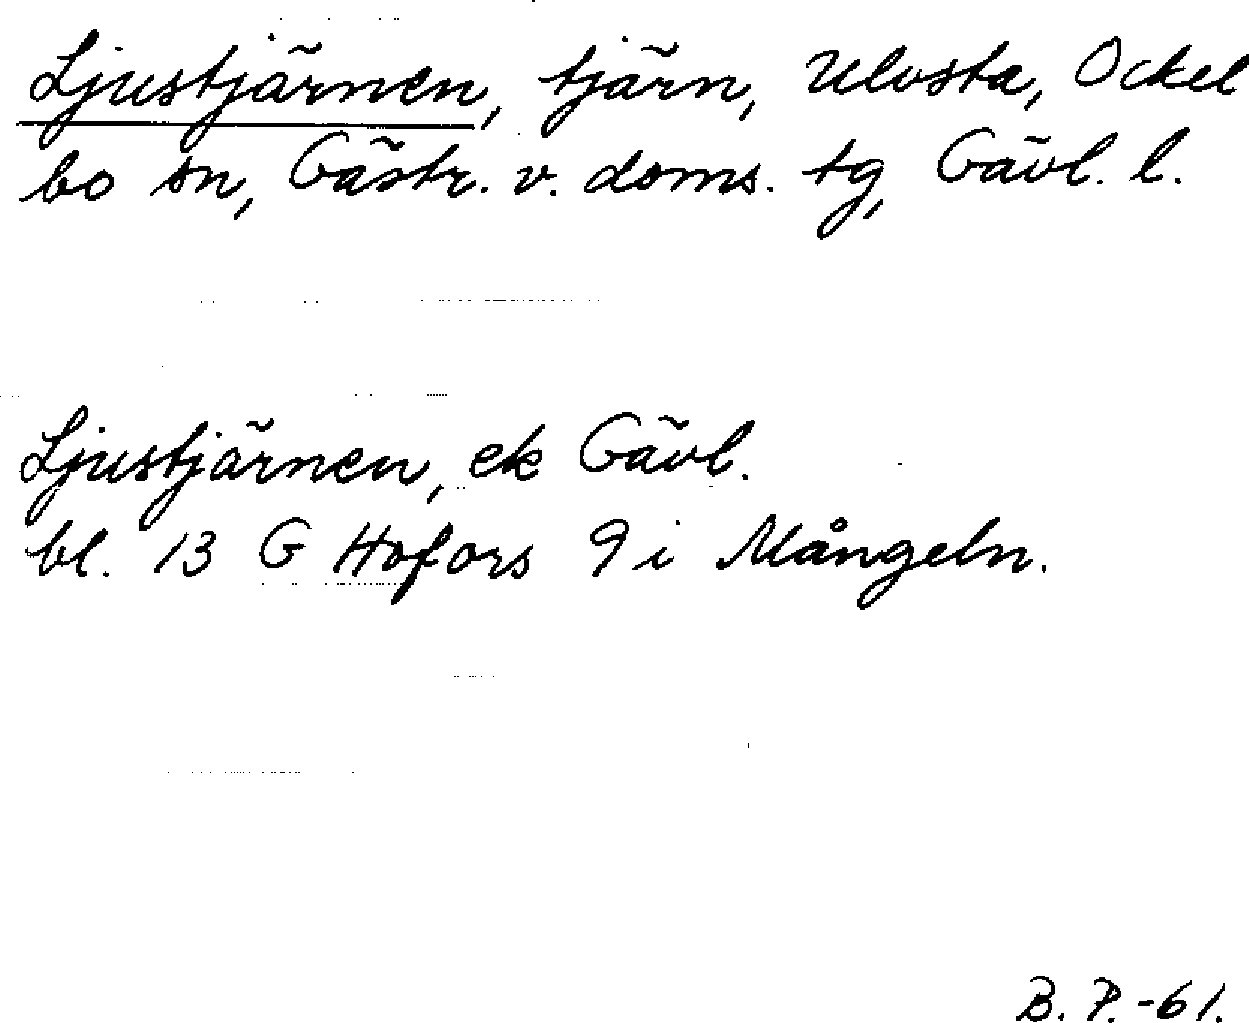 Ljustjärnen, tjärn, Ulvsta, Ockel
bo sn, Gästr. v. doms. tg, Gävl. l.
Ljustjärnen, ek Gävl.
bl. 13 G Hofors 9 i Mångeln.
B. P. -61.